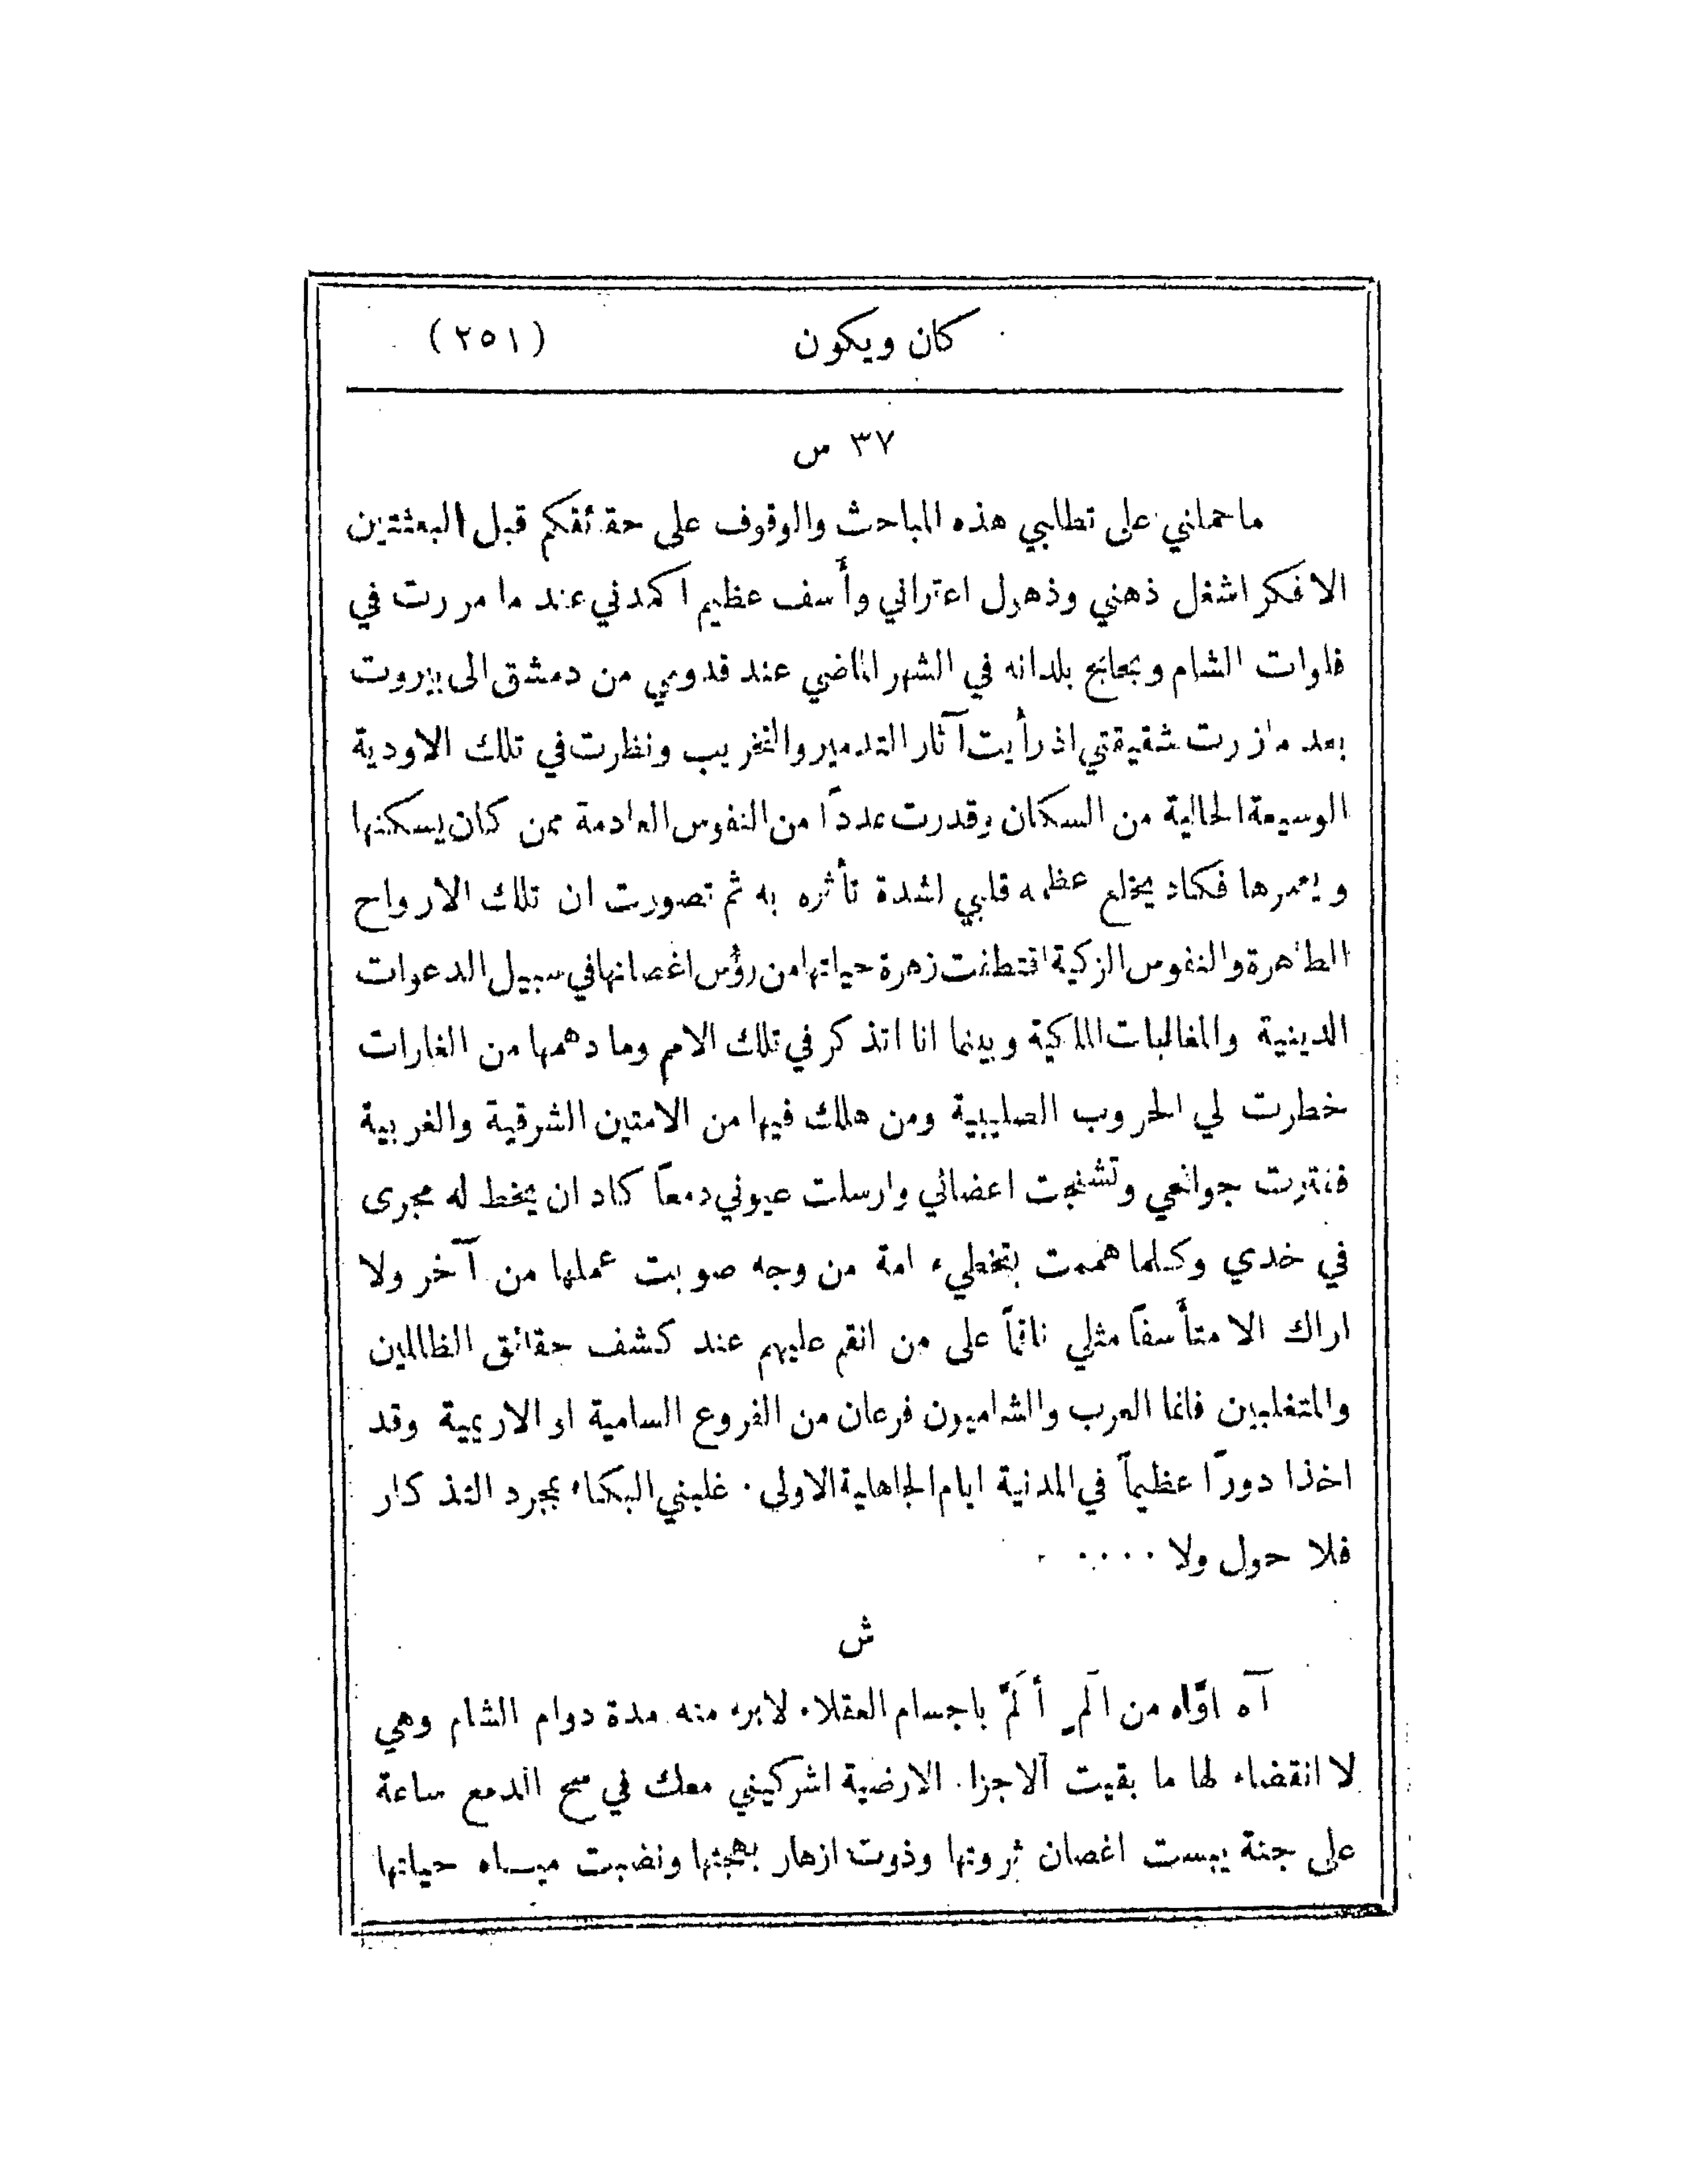 كان ويكون (٢٥١)
٣٧ س
ما حملني على تطلبي هذه المباحث والوقوف على حقائقكم قبل البعثتين
الا فكر اشغل ذهني وذهول اعتراني وأسف عظيم اكمدني عند ما مررت في
فلوات الشام وبحابح بلدانه في الشهر الماضي عند قدومي من دمشق الى بيروت
بعد ما زرت شقيقتي اذ رأيت آثار التدمير والتخريب ونظرت في تلك الاودية
الوسيعة الخالية من السكان وقدرت عدداً من النفوس العادمة ممن كان يسكنها
ويعمرها فكاد يخلع عظمه قلبي لشدة تأثره به ثم تصورت ان تلك الارواح
الطاهرة والنفوس الزكية اقتطفت زهرة حياتها من رؤس اغصانها في سبيل الدعوات
الدينية والمغالبات الملكية وبينما انا اتذكر في تلك الامم وما دهمها من الغارات
خطرت لي الحروب الصليبية ومن هلك فيها من الامتين الشرقية والغربية
ففترت جوانحي وتشنجت اعضائي وارسلت عيوني دمعاً كاد ان يخط له مجرى
في خدي وكلما هممت بتخطيء امة من وجه صوبت عملها من آخر ولا
اراك الا متأسفاً مثلي ناقماً على من انقم عليهم عند كشف حقائق الظالمين
والمتغلبين فانما العرب والشاميون فرعان من الفروع السامية او الاريمية وقد
اخذا دوراً عظيماً في المدنية ايام الجاهلية الاولى . غلبني البكاء بمجرد التذكار
فلا حول ولا . . . .
ش
آه اوّاه من المٍ أَلَمَّ باجسام العقلاء لابرء منه مدة دوام الشام وهي
لا انقضاء لها ما بقيت الاجزاء الارضية اشركيني معك في سح الدمع ساعة
على جنة يبست اغصان ثروتها وذوت ازهار بهجتها ونضبت مياه حياتها